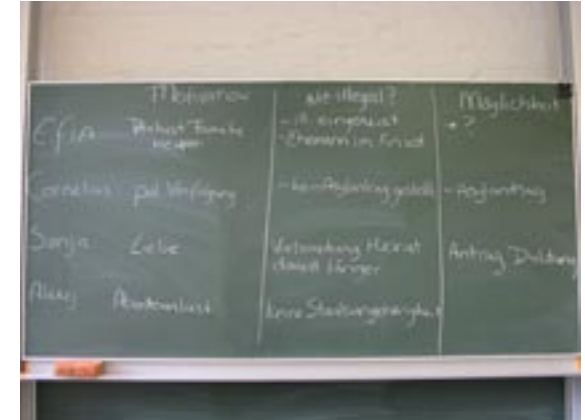 Motivation wie illegal? Möglichkeit
Efia - ill. eingereist - ?
- Ehemann im
Cornelius pol. Verfolgung - kein Asylantrag gestellt - Asylantrag
Sonja Liebe Heirat Antrag Duldung
dauert länger
Abenteuerlust keine Staatsangehörigkeit